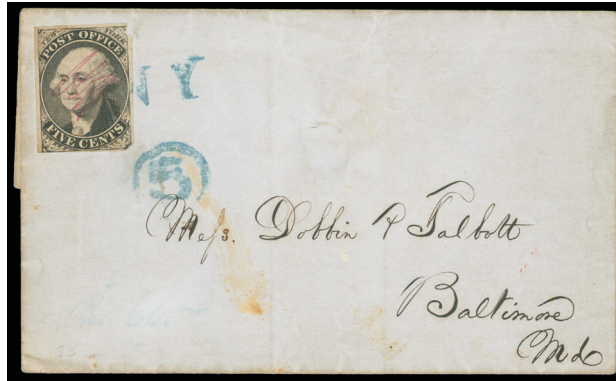 POST OFFICE
FIVE CENTS
NY
5
Mess. Dobbin & Talbott
Baltimore
Md